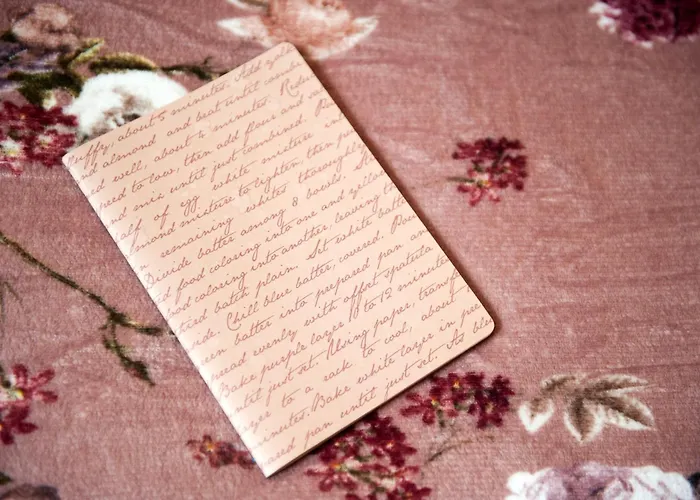 Fluffy, about 5 minutes. Add yolks
and almond and beat until combi
ed well, about 2 minutes. Reduce
peed to low, then add flour and sa
nd mix until just combined.
half of egg white mixture in
lmond mixture to lighten, then fo
in remaining whites thoroughly.
Divide batter among 8 bowls. Sti
d food coloring into one and yellow
ood coloring into another, leaving th
tired batch plain. Set white batte
side. Chill blue batter, covered. Pou
een batter into prepared pan an
pread evenly with offset spatula
Bake purple layer 8 to 12 minutes
ntil just set. Using paper, transf
ayer to a rack to cool, about
minutes. Bake white layer in pre
ared pan until just set. As ble